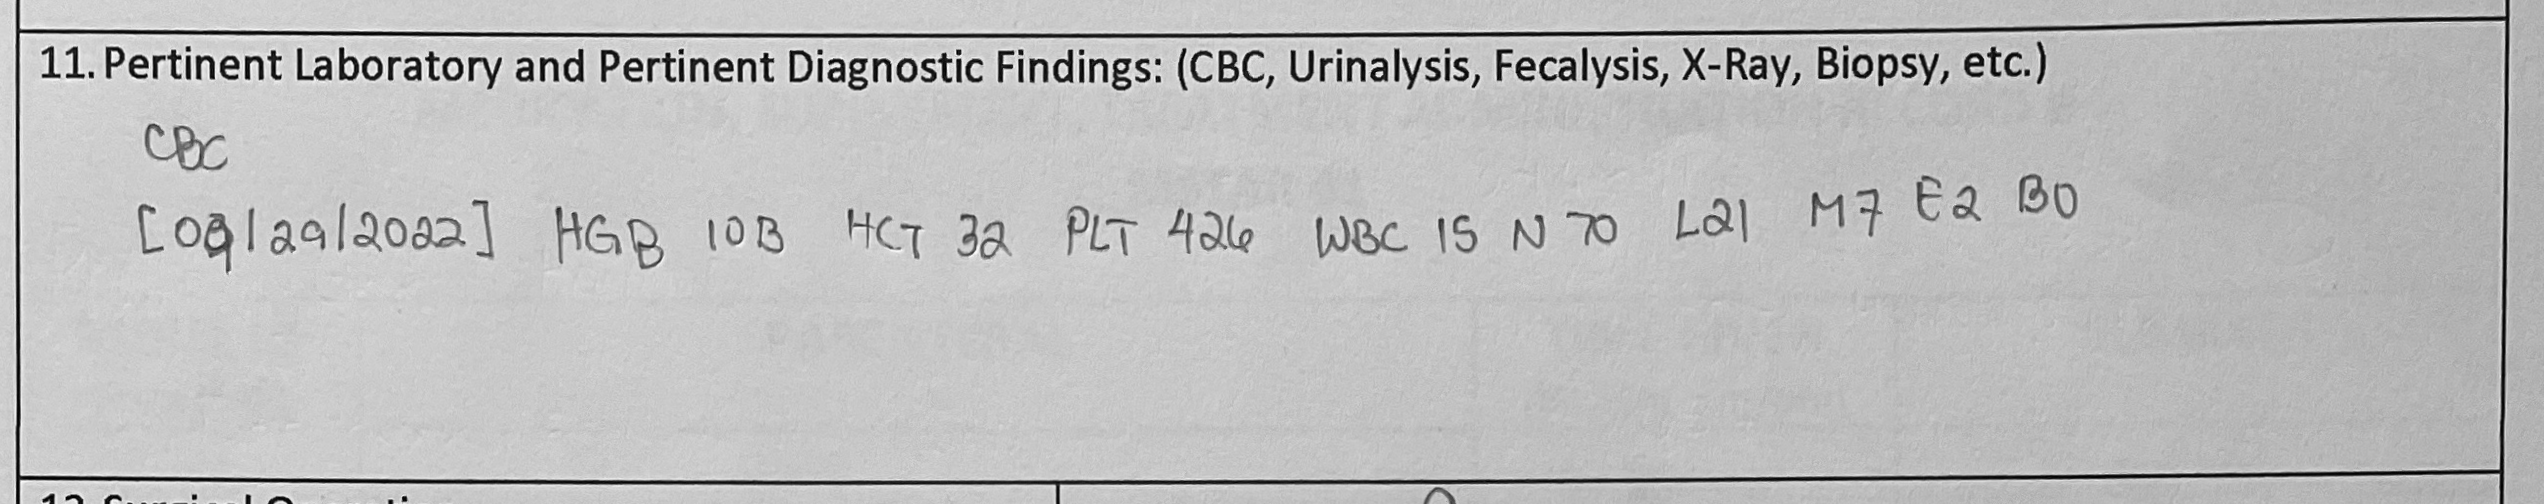 11. Pertinent Laboratory and Pertinent Diagnostic Findings: (CBC, Urinalysis, Fecalysis, X-Ray, Biopsy, etc.)
CBC
[09/29/2022] HGB 10B HCT 32 PLT 426 WBC 15 N 70 L21 M7 E2 B0